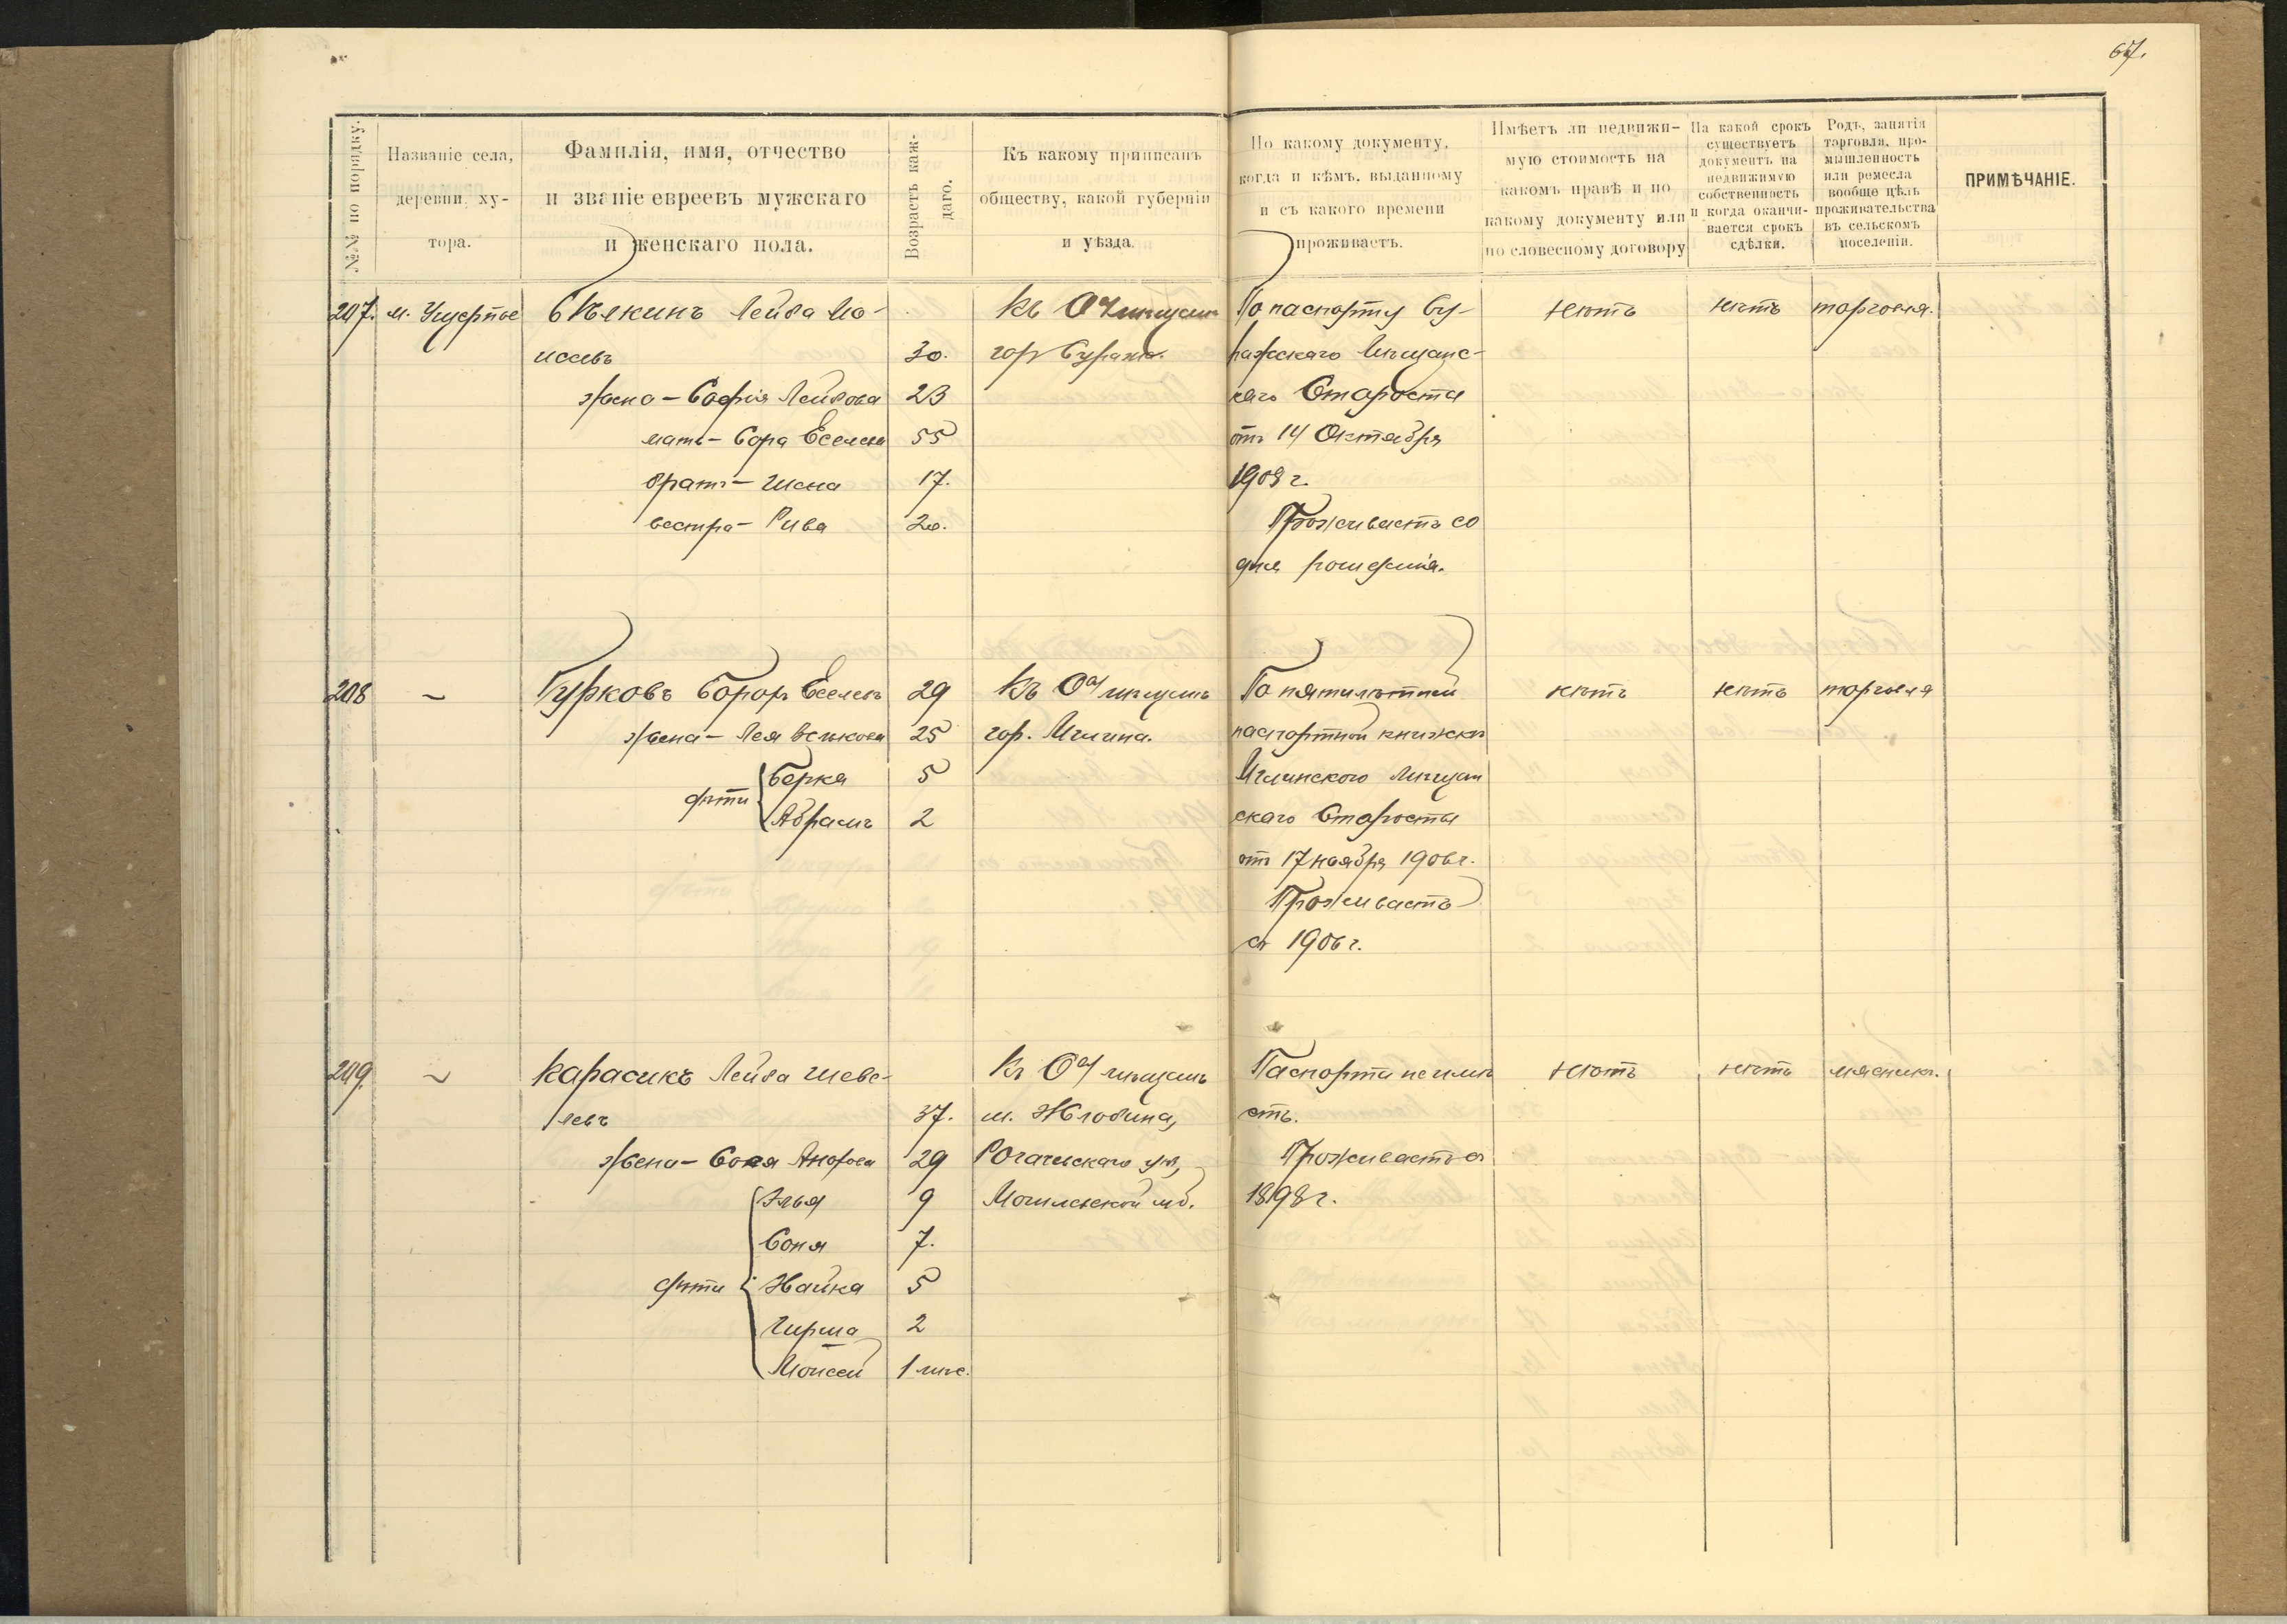 67.
№№ по порядку.
Названіе села,
деревни, ху-
тора.
Фамилія, имя, отчество
и званіе евреевъ мужскаго
и женскаго пола.
Возрастъ каж-
даго.
Къ какому приписанъ
обществу, какой губерніи
и уѣзда.
По какому документу,
когда и кѣмъ, выданному
и съ какого времени
проживаетъ.
Имѣетъ ли недвижи-
мую стоимость на
какомъ правѣ и по
какому документу или
по словесному договору
На какой срокъ
существуетъ
документъ на
недвижимую
собственность
и когда оканчи-
вается срокъ
сдѣлки.
Родъ, занятія
торговля, про-
мышленность
или ремесла
вообще цѣль
проживательства
въ сельскомъ
поселеніи.
ПРИМѢЧАНІЕ.
207. м. Ущерпье
Бѣлкинъ Лейба Мо-
исеевъ 30.
жена – Софія Лейбова 23
мать – Сора Еселева 55
братъ – 17.
сестра – Рива 20.
Къ О‑ву мѣщанъ
гор. Суража.
По паспорту Су-
ражскаго Мѣщанс-
каго Старосты
отъ 14 Октября
1908 г.
Проживаетъ со
дня рожденія.
нѣтъ
нѣтъ
торговля.
208 –
Гурковъ Борохъ Еселевъ 29
жена – Лея Велькова 25
дѣти
Берка 5
Абрамъ 2
Къ О‑ву мѣщанъ
гор. Мглина.
По пятилѣтней
паспортной книжкѣ
Мглинского мѣщан
скаго Старосты
отъ 17 ноября 1906 г.
Проживаетъ
съ 1906 г.
нѣтъ
нѣтъ
торговля
209. –
Карасикъ Лейба Шеве-
левъ 37.
жена – Соня 29
дѣти
Элья 9
Соня 7.
Хайка 5
Гирша 2
Моисей 1 мѣс.
Къ О‑ву мѣщанъ
м. Жлобина,
Рогачевскаго уѣ,
Могилевской губ.
Паспорта не имѣ
етъ.
Проживаетъ съ
1898 г.
нѣтъ
нѣтъ
мясникъ.